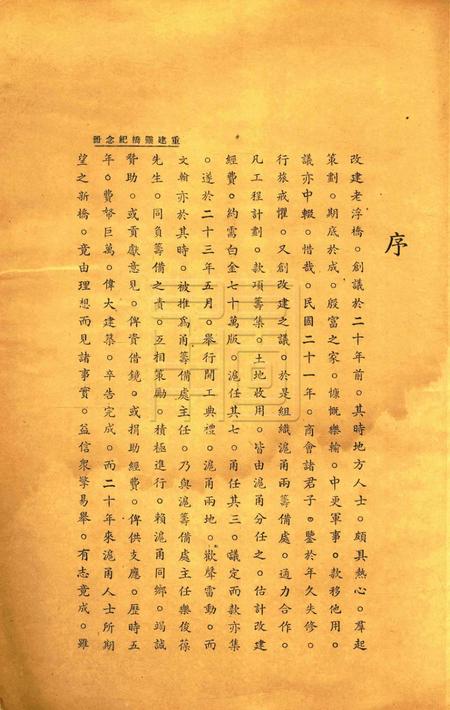 重建靈橋紀念冊
序
改建老浮橋。創議於二十年前。其時地方人士。頗具熱心。羣起
策劃。期底於成。殷富之家。慷慨樂輸。中更軍事。款移他用。
議亦中輟。惜哉。民國二十一年。商會諸君子。鑒於年久失修。
行旅戒懼。又創改建之議。於是組織滬甬兩籌備處。通力合作。
凡工程計劃。款項籌集。土地收用。皆由滬甬分任之。估計改建
經費。約需白金七十萬版。滬任其七。甬任其三。議定而款亦集
。遂於二十三年五月。舉行開工典禮。滬甬兩地。歡聲雷動。而
文翰亦於其時。被推爲甬籌備處主任。乃與滬籌備處主任樂俊葆
先生。同負籌備之責。互相策勵。積極進行。賴滬甬同鄉。竭誠
贊助。或貢獻意見。俾資借鏡。或捐助經費。俾供支應。歷時五
年。費幣巨萬。偉大建築。卒告完成。而二十年來滬甬人士所期
望之新橋。竟由理想而見諸事實。益信衆擎易舉。有志竟成。雖